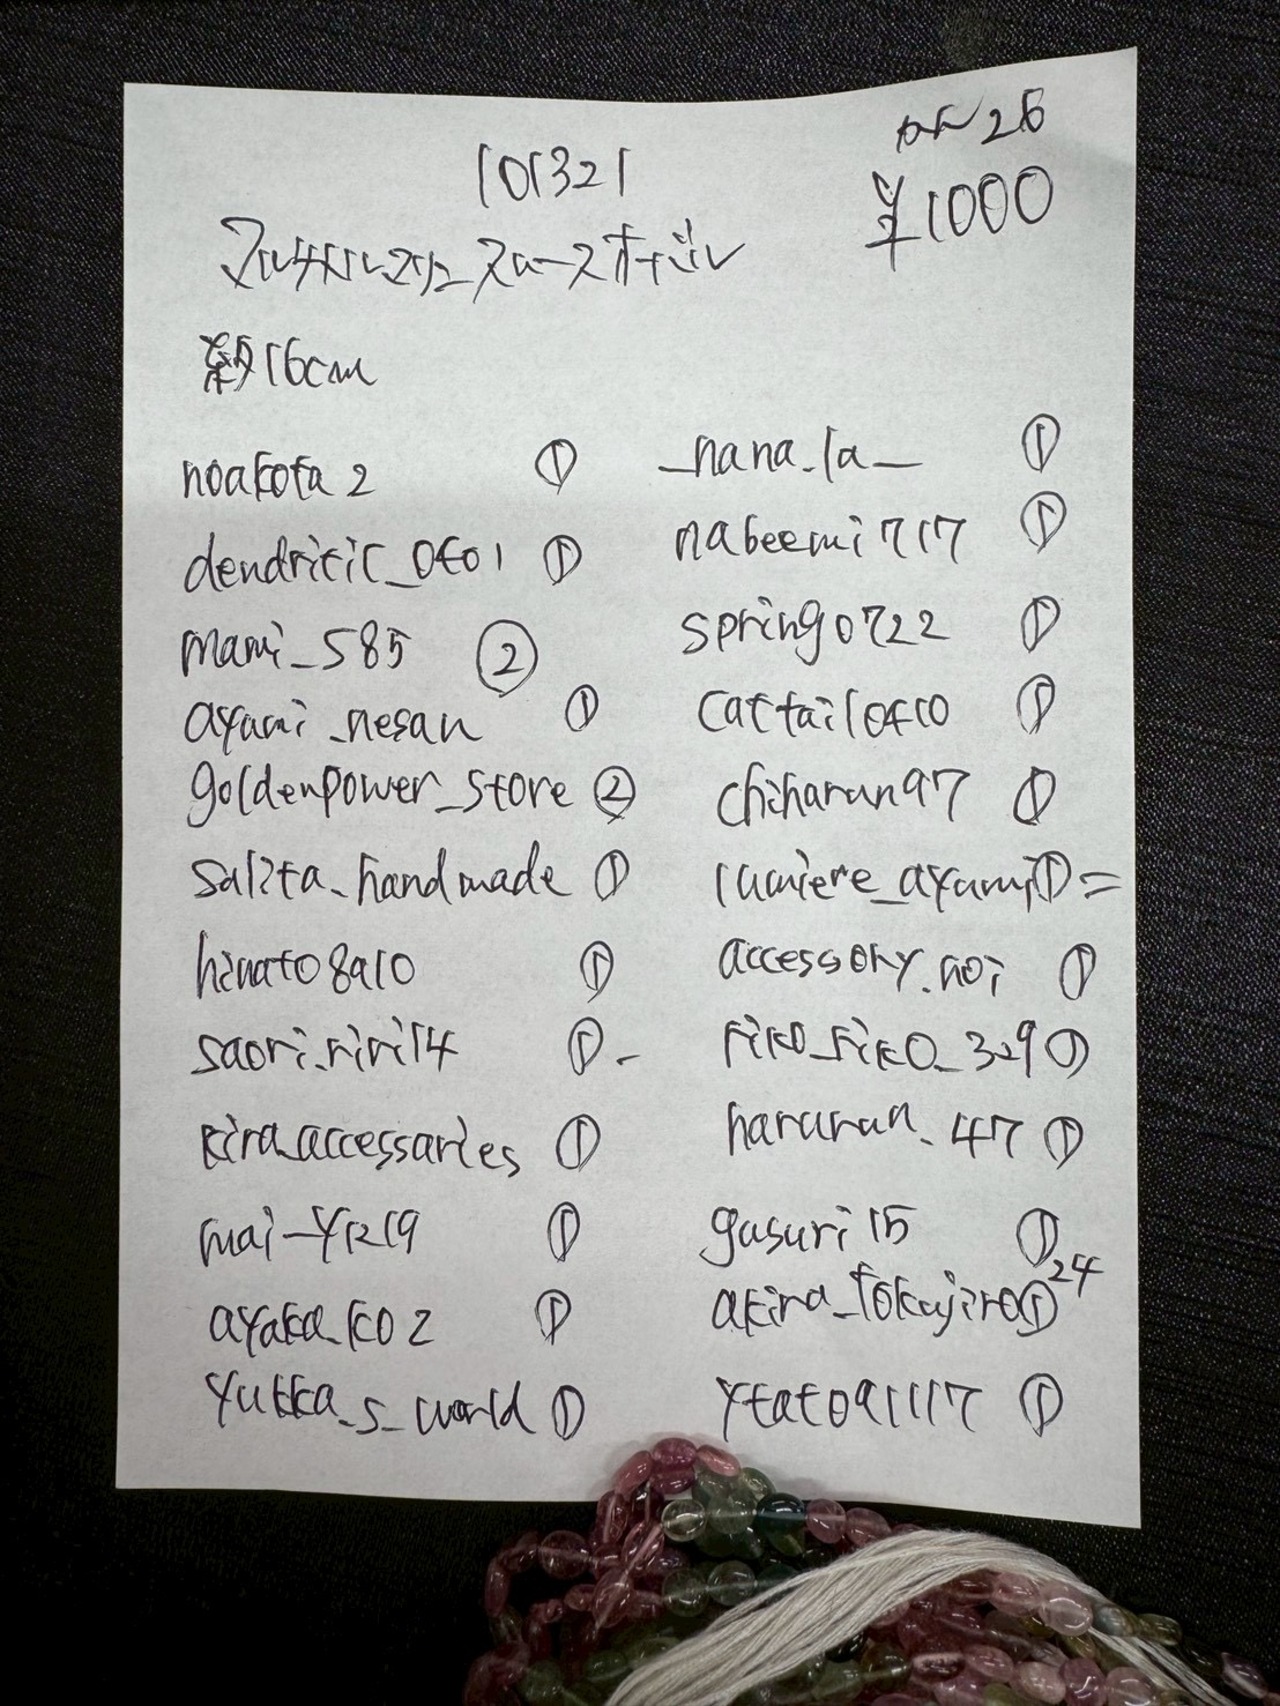 101321
¥1000
マルチトルマリン スムースオーバル
約16cm
noakota2 ①
dendritic_0401 ①
mami_585 ②
ayumi_nesan ①
goldenpower_store ②
salita_handmade ①
hinato8910 ①
saori.riri14 ①-
kira_accessaries ①
mai-yk219 ①
ayaka_k02 ①
yukka_s_world ①
_nana.la_ ①
nabeemi717 ①
spring0722 ①
cattail0410 ①
chiharun97 ①
lumiere_ayumi ① =
accessory.noi ①
riko_riko_329 ①
haruran_47 ①
gusuri15 ①
akira_tokujiro24 ①
ytato91117 ①